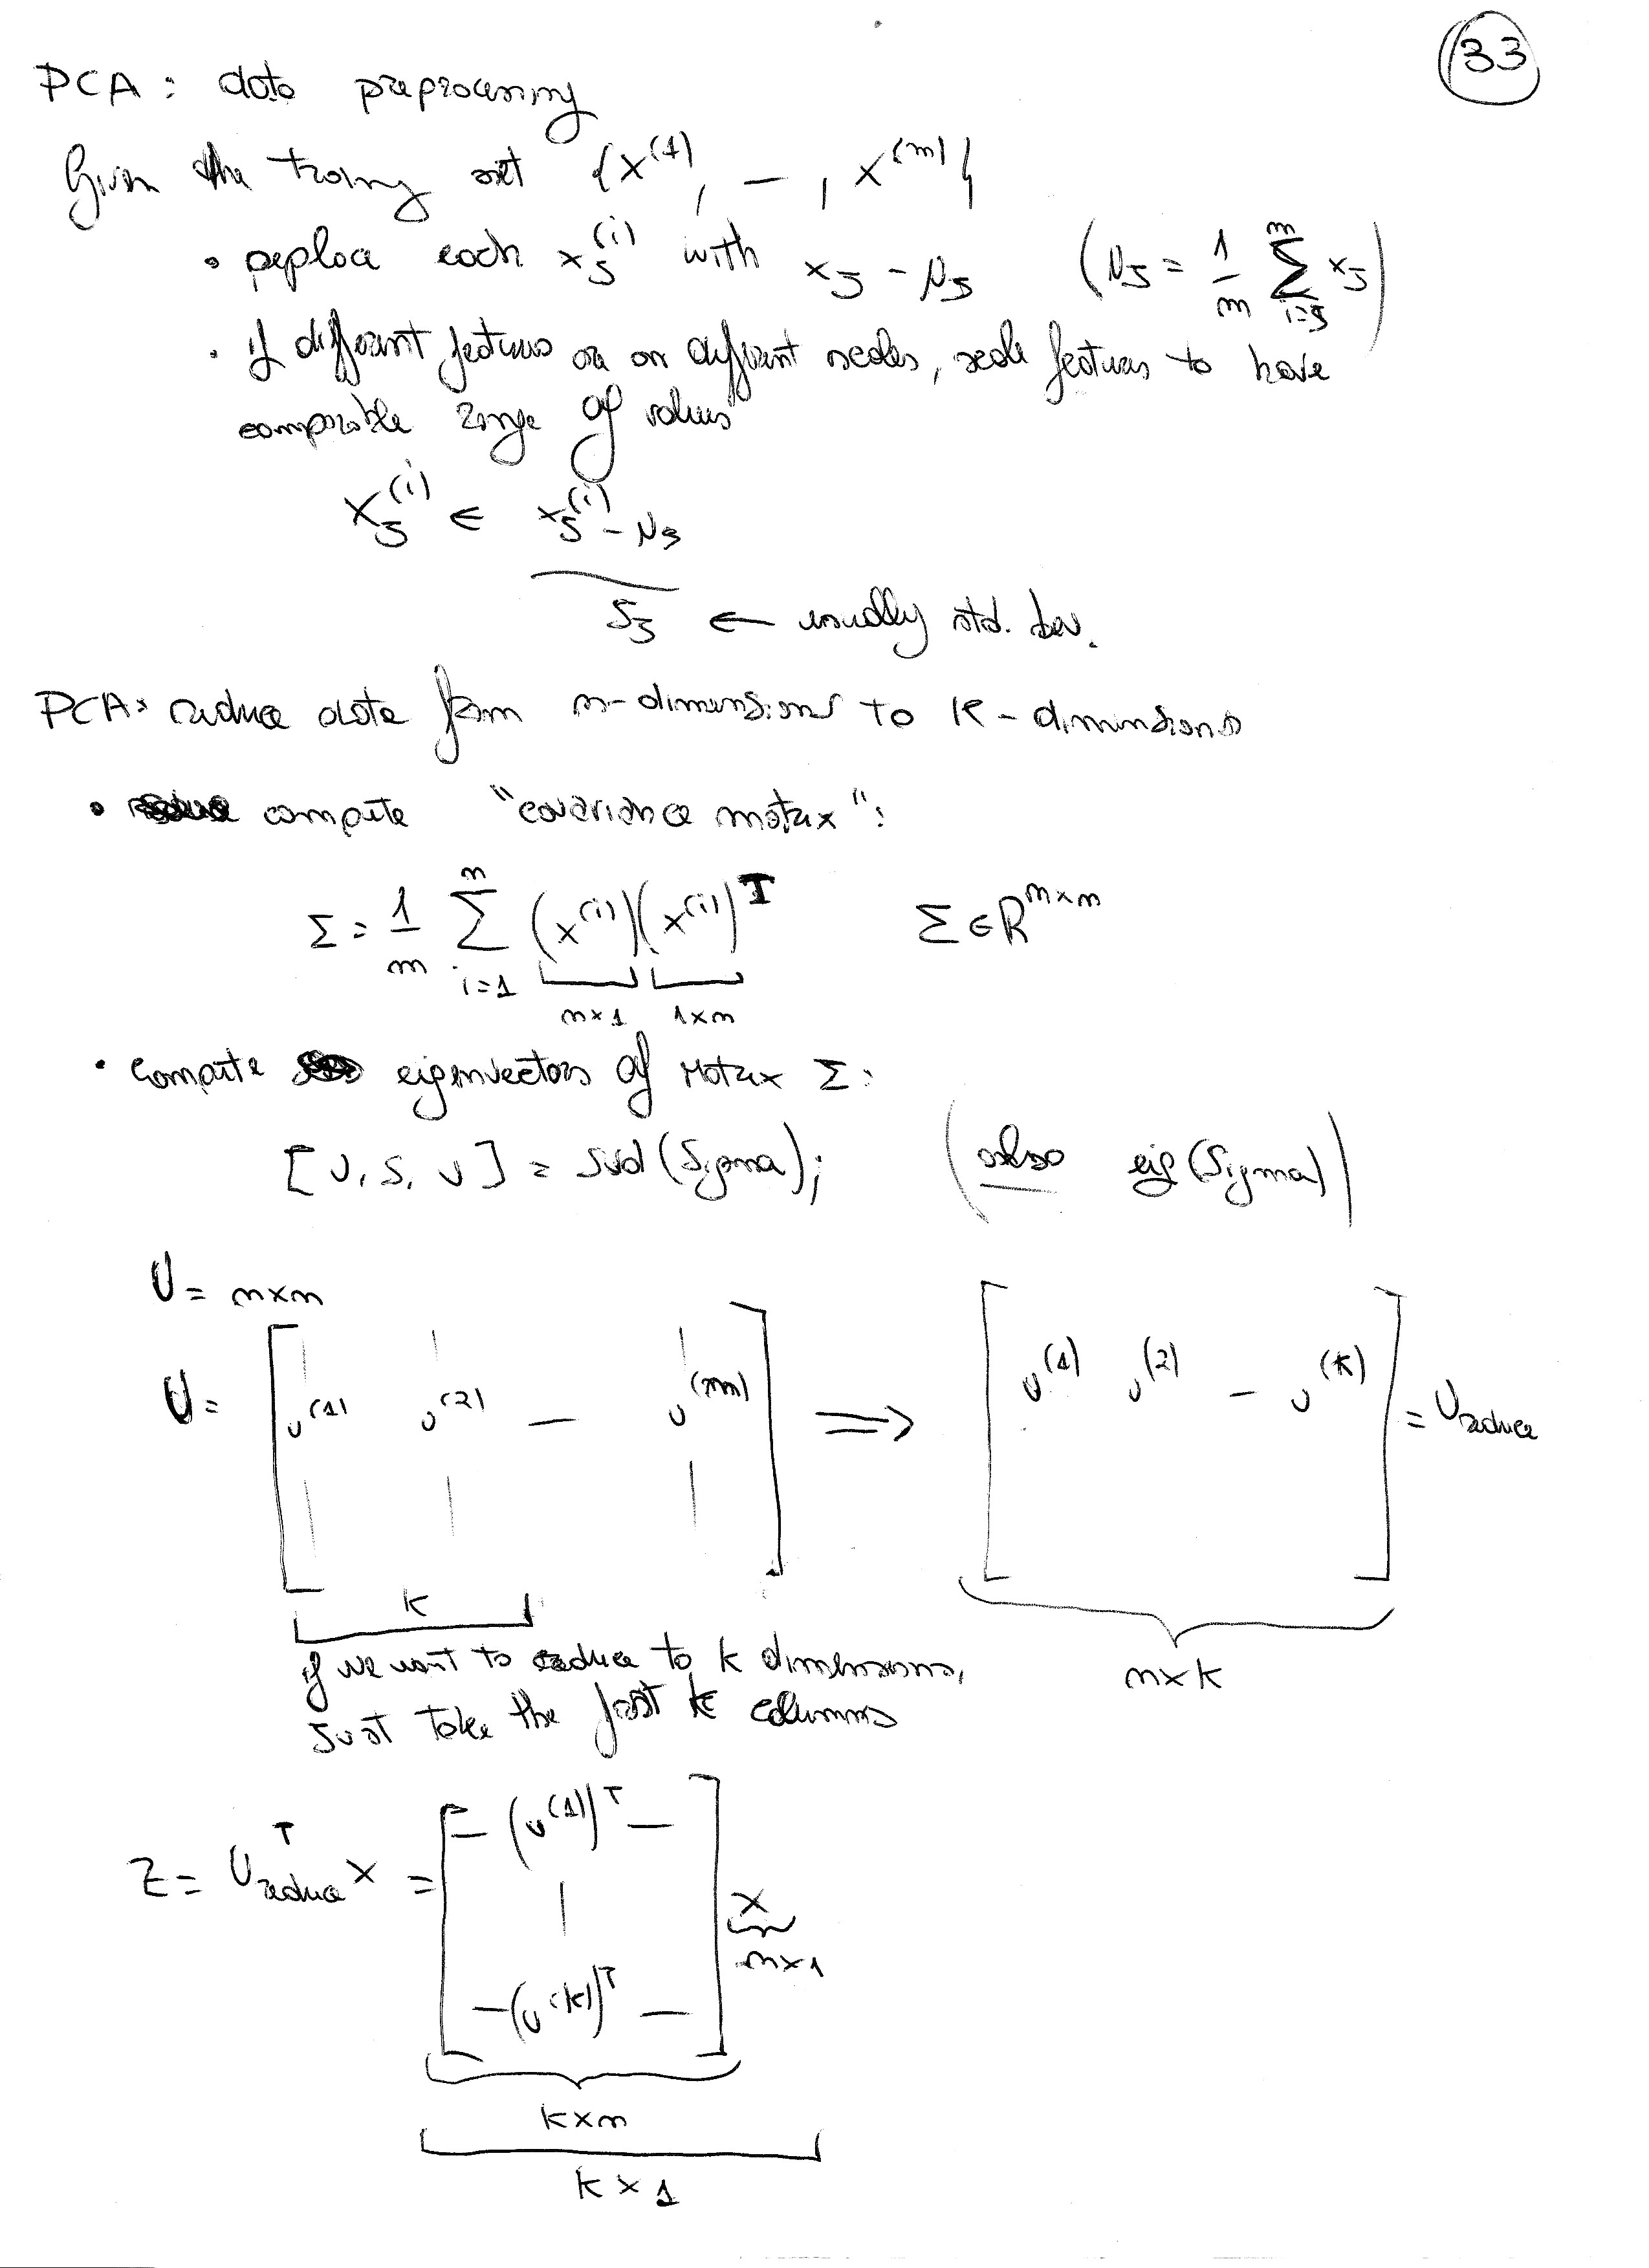 33
PCA: data preprocessing
Given the training set {x^(1), – , x^(m)}
• replace each x_j^(i) with x_j - μ_j (μ_j = 1/m Σ_{i=1}^m x_j)
• if different features are on different scales, scale features to have
comparable range of values
x_j^(i) ← x_j^(i) - μ_j
s_j ← usually std. dev.
PCA: reduce data from n-dimensions to k-dimensions
• compute "covariance matrix":
Σ = 1/m Σ_{i=1}^n (x^(i))(x^(i))^T Σ ∈ R^{n×n}
n×1 1×n
• Compute eigenvectors of Matrix Σ:
[U, S, V] = svd(Sigma); (also eig(Sigma))
U = n×n
U = [u^(1) u^(2) – u^(m)] ⟹ [u^(1) u^(2) – u^(k)] = U_reduce
k
if we want to reduce to k dimensions,
just take the first k columns
n×k
z = U_reduce^T x = [– (u^(1))^T – | – (u^(k))^T –] x
n×1
k×n
k×1